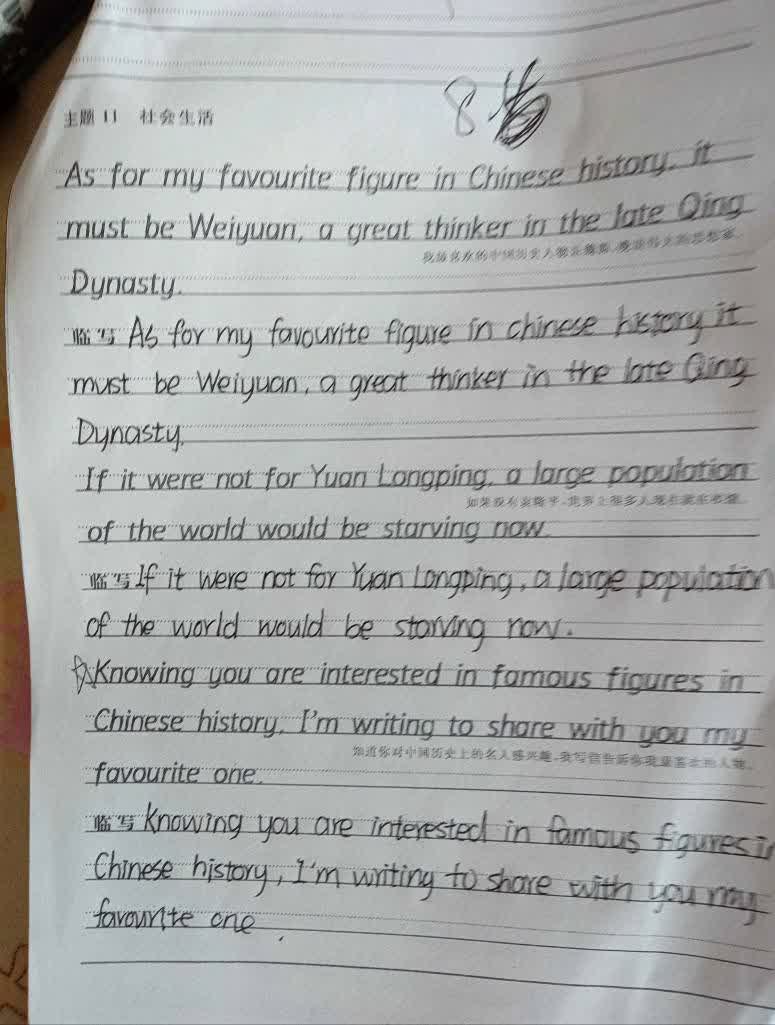 8
主题 11 社会生活
As for my favourite figure in Chinese history, it
must be Weiyuan, a great thinker in the late Qing
我最喜欢的中国历史人物是魏源,晚清伟大的思想家。
Dynasty.
临写 As for my favourite figure in chinese history it
must be Weiyuan, a great thinker in the late Qing
Dynasty.
If it were not for Yuan Longping, a large population
如果没有袁隆平,世界上很多人现在就在挨饿。
of the world would be starving now.
临写 If it were not for Yuan Longping, a large population
of the world would be starving now.
Knowing you are interested in famous figures in
Chinese history, I'm writing to share with you my
知道你对中国历史上的名人感兴趣,我写信告诉你我最喜欢的人物。
favourite one.
临写 Knowing you are interested in famous figures in
Chinese history, I'm writing to share with you my
favourite one.